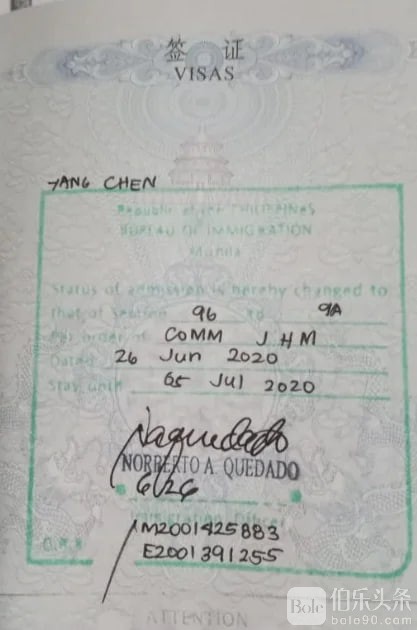 签 证
VISAS
YANG CHEN
Republic of the PHILIPPINES
BUREAU OF IMMIGRATION
Manila
Status of admission is hereby changed to
that of Section 9G to 9A
Per order of COMM J H M
Dated 26 Jun 2020
Stay until 05 Jul 2020
NORBERTO A QUEDADO
6/26
Immigration Officer
M2001425883
O.R.# E2001391255
ATTENTION
Bole 伯乐头条
bole90.com